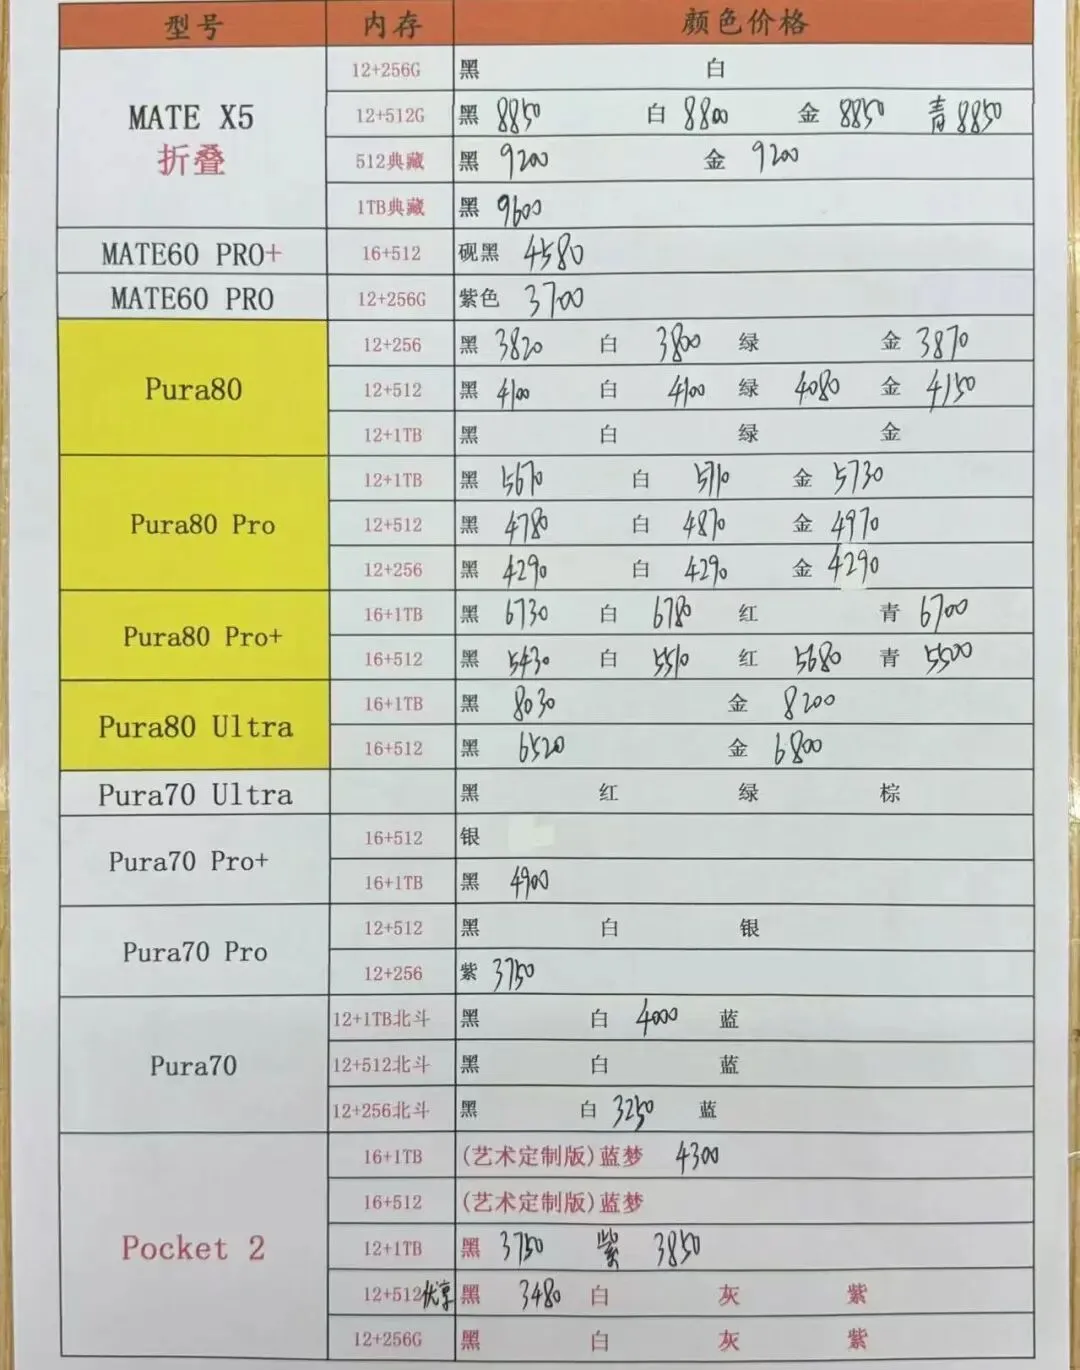 型号 内存 颜色价格
12+256G 黑 白
MATE X5 12+512G 黑 8850 白 8800 金 8850 青 8850
折叠 512典藏 黑 9200 金 9200
1TB典藏 黑 9600
MATE60 PRO+ 16+512 砚黑 4580
MATE60 PRO 12+256G 紫色 3700
12+256 黑 3820 白 3800 绿 金 3870
Pura80 12+512 黑 4100 白 4100 绿 4080 金 4150
12+1TB 黑 白 绿 金
12+1TB 黑 5670 白 5710 金 5730
Pura80 Pro 12+512 黑 4780 白 4870 金 4970
12+256 黑 4290 白 4290 金 4290
Pura80 Pro+ 16+1TB 黑 6730 白 6780 红 青 6700
16+512 黑 5430 白 5510 红 5680 青 5500
Pura80 Ultra 16+1TB 黑 8030 金 8200
16+512 黑 6520 金 6800
Pura70 Ultra 黑 红 绿 棕
Pura70 Pro+ 16+512 银
16+1TB 黑 4900
Pura70 Pro 12+512 黑 白 银
12+256 紫 3750
12+1TB北斗 黑 白 4000 蓝
Pura70 12+512北斗 黑 白 蓝
12+256北斗 黑 白 3250 蓝
16+1TB (艺术定制版)蓝梦 4300
16+512 (艺术定制版)蓝梦
Pocket 2 12+1TB 黑 3750 紫 3850
12+512优享 黑 3480 白 灰 紫
12+256G 黑 白 灰 紫